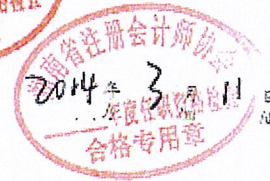 南省注册会计师协会
2014年3月11日
年度任职资格检
合格专用章